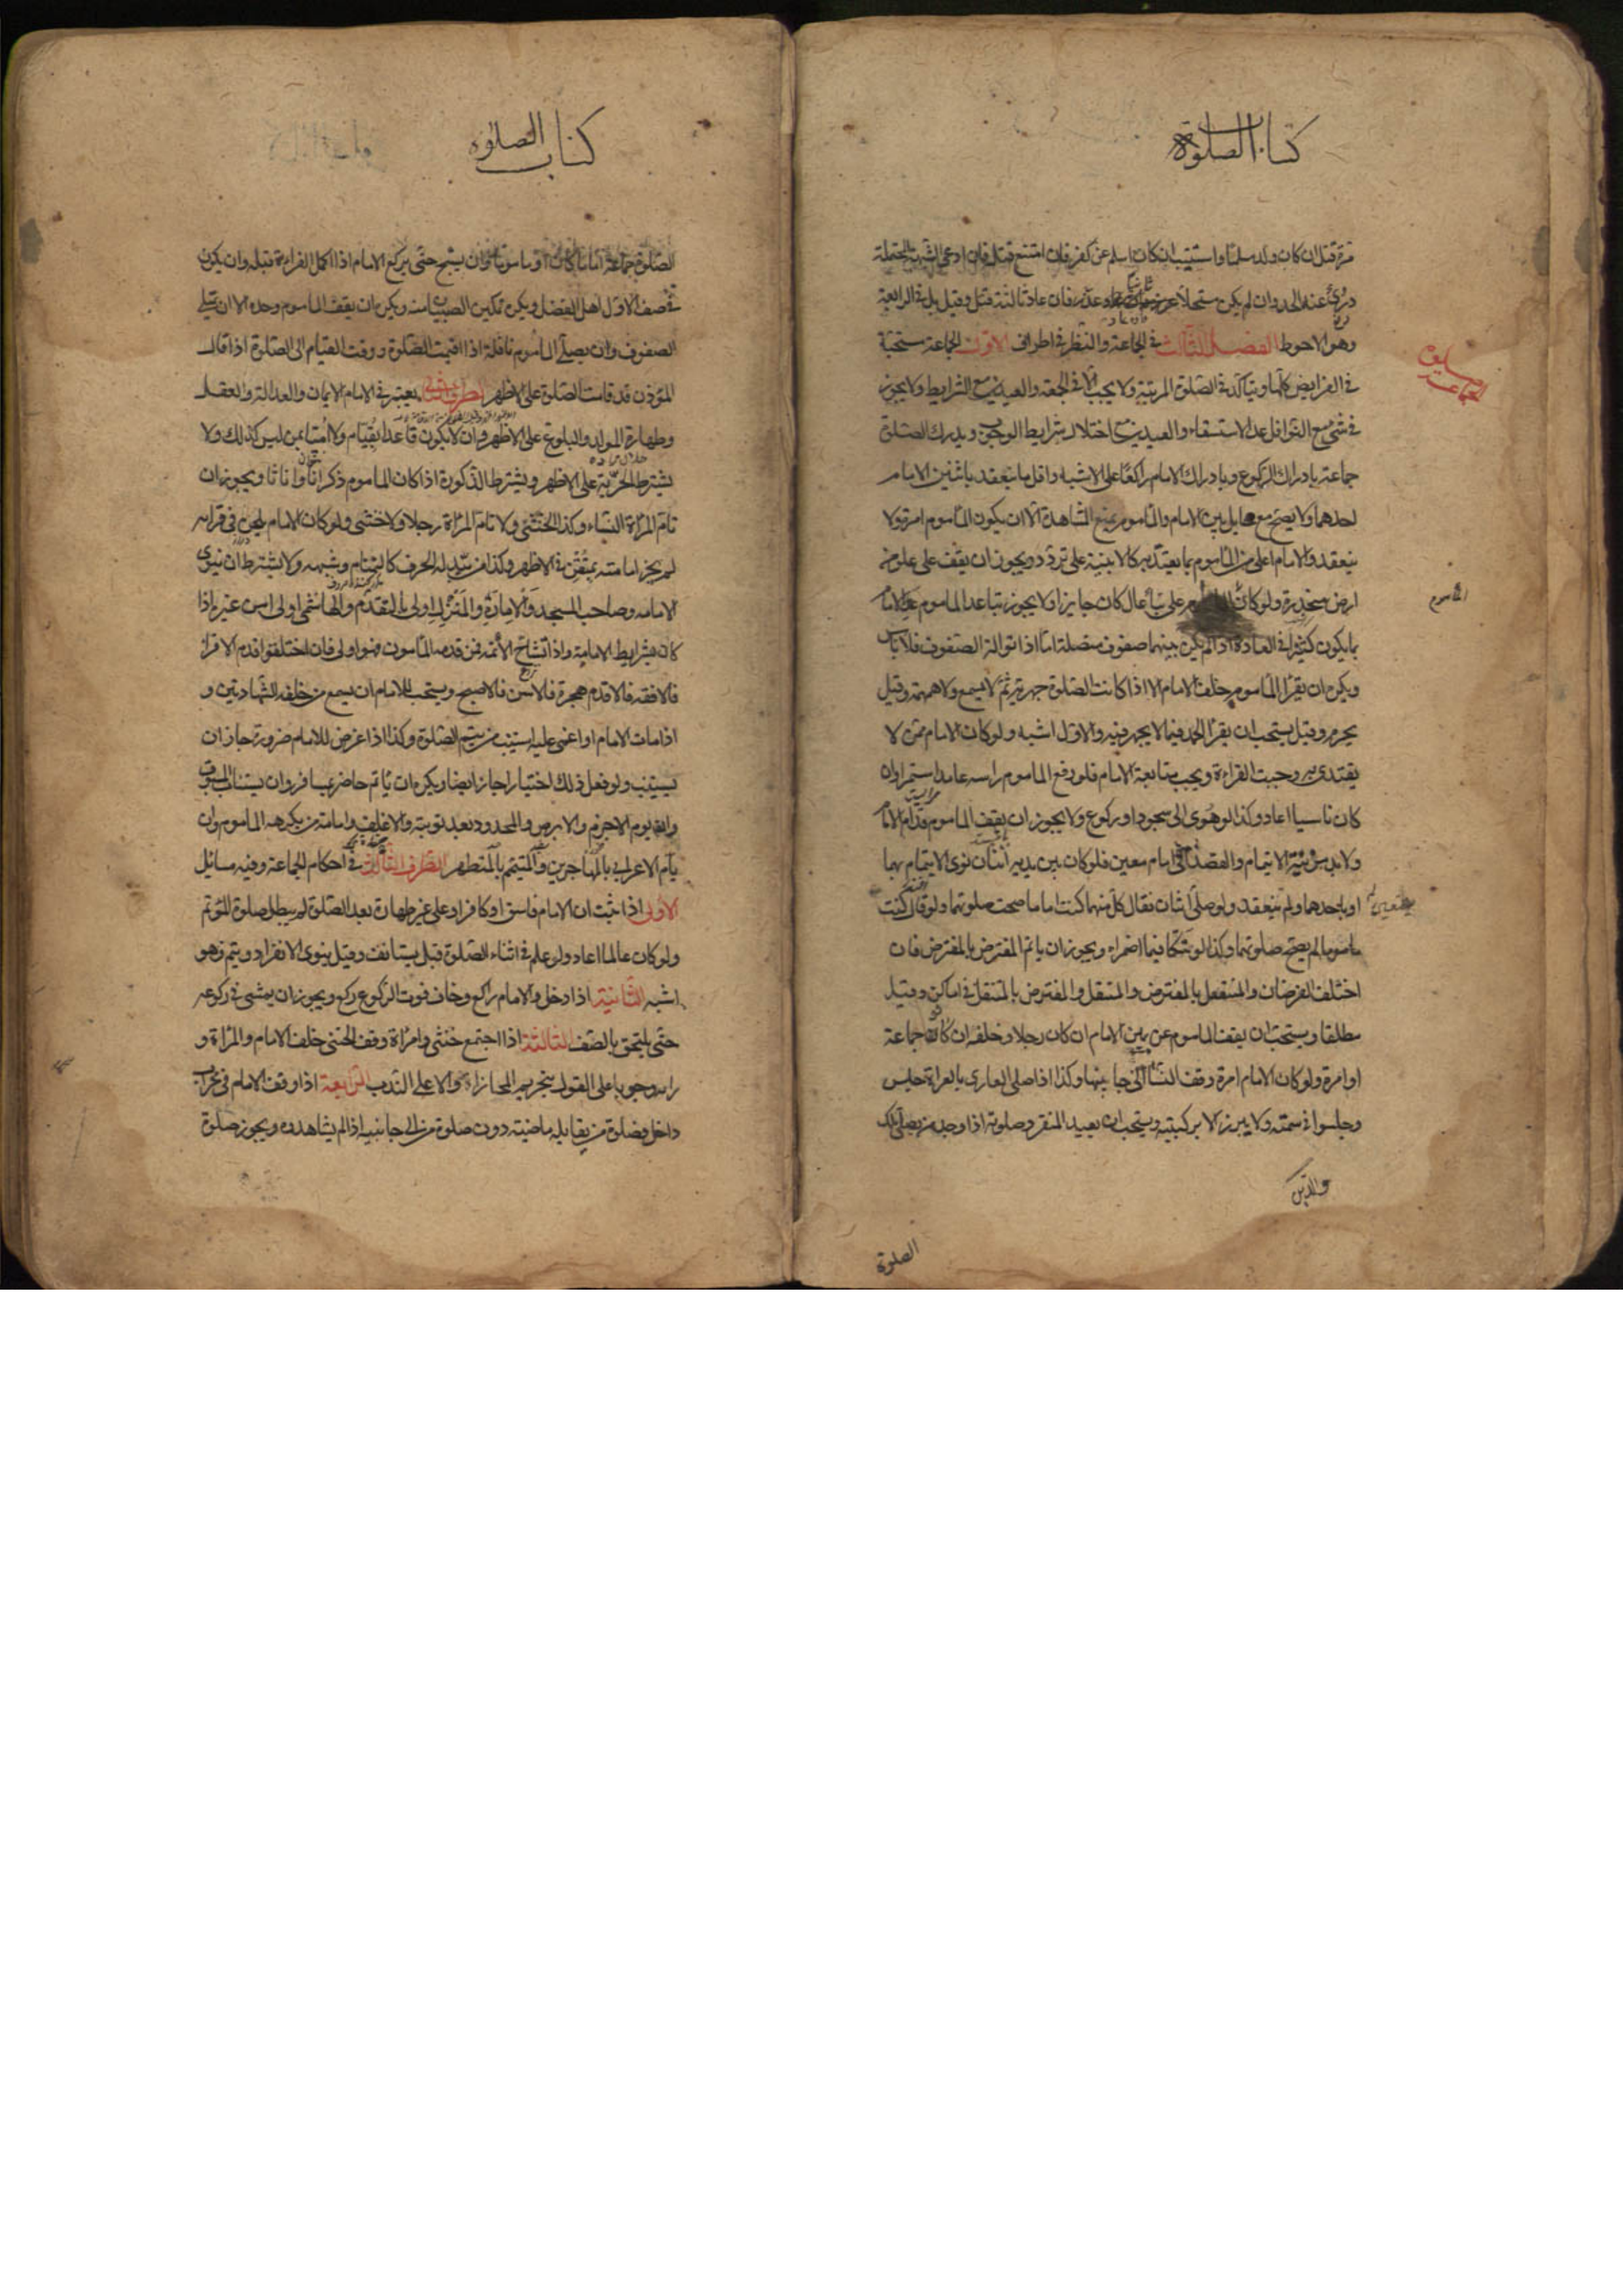 كتاب الصلوة
مرة قتل ان كان ولد مسلما واستتيب ان كان اسلم عن كفر فان امتنع قتل فان ادعى الشبهة المحتملة
درئ عنه الحد وان لم يكن مستحلا عزر وعزر فان عاد ثالثة قتل وقيل بل في الرابعة
وهو الاحوط الفصل الثالث في الجماعة والنظر في اطراف الاول الجماعة مستحبة
في الفرايض كلها ويتأكد في الصلوة المرتبة ولا يجب الا في الجمعة والعيدين مع الشرايط ولا يجوز
في شئ مع النوافل عدا الاستسقاء والعيدين مع اختلال شرايط الوجوب ويدرك الصلوة
جماعة بادراك الركوع وبادراك الامام راكعا على الاشبه واقل ما ينعقد باثنين الامام
احدهما ولا يصح مع حايل بين الامام والمأموم يمنع المشاهدة الا ان يكون المأموم امرة ولا
ينعقد والامام اعلى من المأموم بما يعتد به كالابنية على تردد ويجوز ان يقف على علو من
ارض منحدرة ولو كان على بناء عال كان جايزا ولا يجوز تباعد الماموم عن الامام
المأموم
بما يكون كثيرا في العادة اذا لم يكن بينهما صفوف متصلة اما اذا توالت الصفوف فلا باس
ويكره ان يقرأ المأموم خلف الامام الا اذا كانت الصلوة جهرية ثم لا يسمع ولا همهمة وقيل
يحرم وقيل يستحب ان يقرأ الحمد فيما لا يجهر فيه والاول اشبه ولو كان الامام ممن لا
يقتدى به وجبت القراءة ويجب متابعة الامام فلو رفع الماموم راسه عامدا استمر وان
كان ناسيا اعاد وكذا لو هوى الى سجود او ركوع ولا يجوز ان يقف الماموم قدام الامام
ولا بد من نية الايتمام والقصد الى امام معين فلو كان بين يديه اثنان نوى الايتمام بهما
او باحدهما ولم ينعقد ولو صلى اثنان فقال كل منهما كنت اماما صحت صلوتهما ولو قال كنت
ماموما لم يصح صلوتهما وكذا لو شكا فيما اضمراه ويجوز ان ياتم المفترض بالمفترض فان
اختلف الفرضان والمتنفل بالمفترض والمتنفل والمفترض بالمتنفل في اماكن وقيل
مطلقا ويستحب ان يقف الماموم عن يمين الامام ان كان رجلا وخلفه ان كانوا جماعة
او امرة ولو كان الامام امرة وقف النساء الى جانبيها وكذا اذا صلى العاري بالعراة جلس
وجلسوا في سمته ولا يبرز الا بركبتيه ويستحب ان يعيد المنفرد صلوته اذا وجد من يصلي تلك
الصلوة
كتاب الصلوه
الصلوة جماعة اماما كان او ماموما وان يسبح حتى يركع الامام اذا اكمل القراءة قبله وان يكون
في صف الاول اهل الفضل ويكره تمكين الصبيان منه ويكره ان يقف الماموم وحده الا ان تمتلي
الصفوف وان يصلي المأموم نافلة اذا اقيمت الصلوة ووقت القيام الى الصلوة اذا قال
المؤذن قد قامت الصلوة على الاظهر الطرف الثاني يعتبر في الامام الايمان والعدالة والعقل
وطهارة المولد والبلوغ على الاظهر وان لا يكون قاعدا بقيام ولا اميا بمن ليس كذلك ولا
يشترط الحرية على الاظهر ويشترط الذكورة اذا كان الماموم ذكرانا او اناثا ويجوز ان
تام المرأة النساء وكذا الخنثى ولا تام المرأة رجلا ولا خنثى ولو كان الامام يلحن في قرائته
لم يجز امامته بمتقن على الاظهر وكذا من يبدل الحرف كالتمتام وشبهه ولا يشترط ان ينوى
الامامه وصاحب المسجد والامارة والمنزل اولى بالتقدم والهاشمي اولى من غيره اذا
كان بشرايط الامامة واذا تشاح الأئمة فمن قدمه المأمومون فهو اولى فان اختلفوا قدم الاقرأ
فالافقه فالاقدم هجرة فالاسن فالاصبح ويستحب للامام ان يسمع من خلفه الشهادتين و
اذا مات الامام او اغمى عليه استنيب من يتم الصلوة وكذا اذا عرض للامام ضرورة جاز ان
يستنيب ولو فعل ذلك اختيارا جاز ايضا ويكره ان ياتم حاضر بمسافر وان يستناب المسبوق
وان يوم الاجزم والابرص والمحدود بعد توبته والاغلف وامامة من يكرهه الماموم وان
يأم الاعرابي بالمهاجرين والمتيمم بالمتطهر الطرف الثالث في احكام الجماعة وفيه مسائل
الاولى اذا ثبت ان الامام فاسق او كافر او على غير طهارة بعد الصلوة لم يبطل صلوة المؤتم
ولو كان عالما اعاد ولو علم في اثناء الصلوة قيل يستانف وقيل ينوى الانفراد ويتم وهو
اشبه الثانية اذا دخل والامام راكع وخاف فوت الركوع ركع ويجوز ان يمشي في ركوعه
حتى يلتحق بالصف الثالثة اذا اجتمع خنثى وامرأة وقف الخنثى خلف الامام والمرأة و
راءه وجوبا على القول بتحريم المحاذاة والا على الندب الرابعة اذا وقف الامام في محراب
داخل فصلوة من يقابله ماضية دون صلوة من الى جانبيه اذا لم يشاهدوه ويجوز صلوة